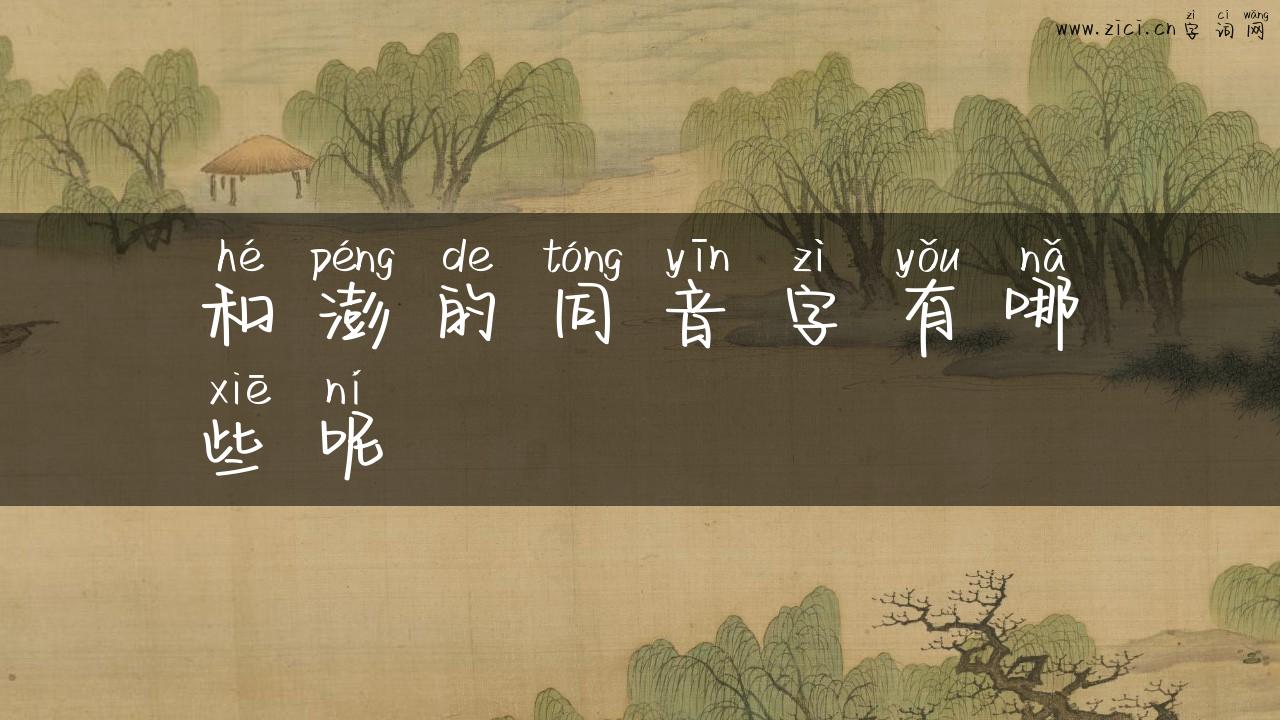 zì cí wǎng
www.zici.cn 字词网
hé péng de tóng yīn zì yǒu nǎ
和澎的同音字有哪
xiē ní
些呢